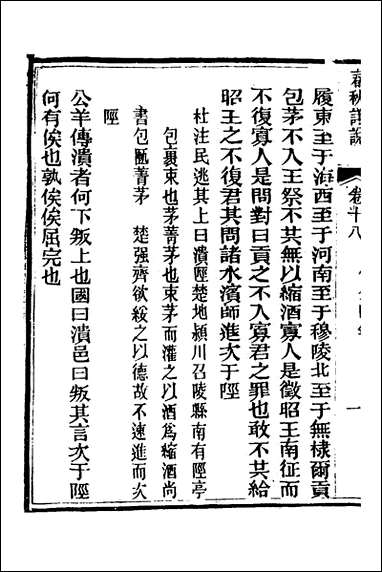 春秋詳說
卷十八
一
履東至于海西至于河南至于穆陵北至于無棣爾貢
包茅不入王祭不共無以縮酒寡人是徵昭王南征而
不復寡人是問對曰貢之不入寡君之罪也敢不共給
昭王之不復君其問諸水濱師進次于陘
杜注民逃其上曰潰陘楚地潁川召陵縣南有陘亭
包裹束也茅菁茅也束茅而灌之以酒為縮酒尚
書包匭菁茅　楚强齊欲綏之以德故不速進而次
陘
公羊傳潰者何下叛上也國曰潰邑曰叛其言次于陘
何有俟也孰俟俟屈完也